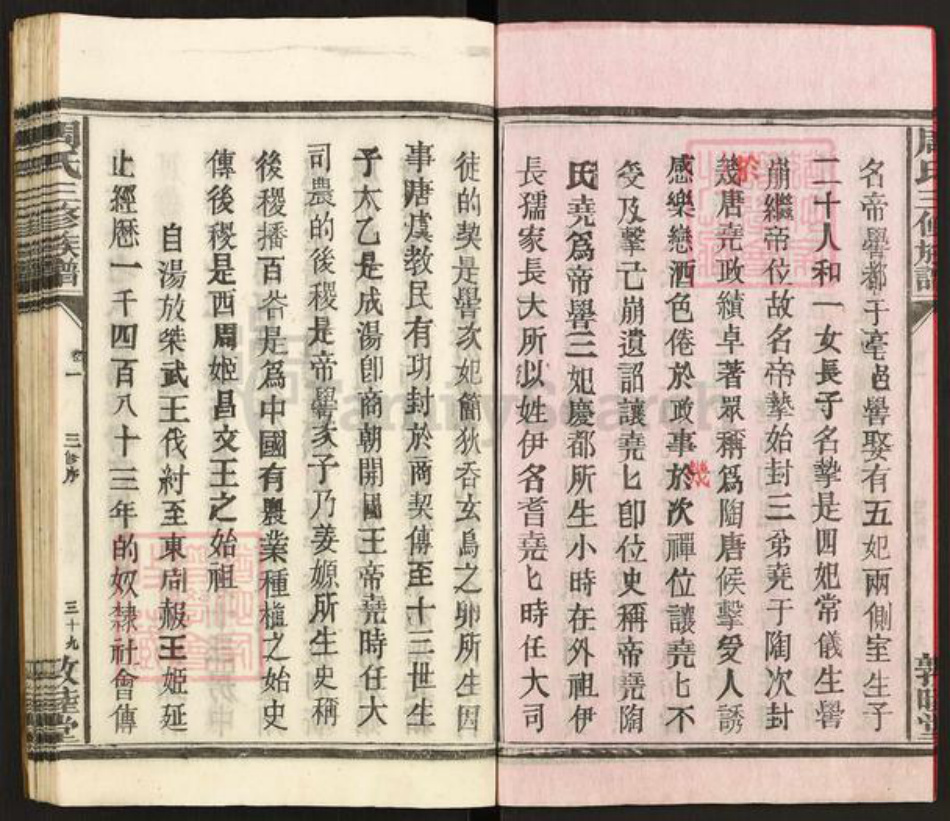 名帝嚳都于亳邑嚳娶有五妃兩側室生子
二十人和一女長子名摯是四妃常儀生嚳
崩繼帝位故名帝摯始封三弟堯于陶次封
於
幾唐堯政績卓著眾稱爲陶唐候擊受人誘
感樂戀酒色倦於政事於次禪位讓堯匕不
幾
受及擊己崩遺詔讓堯匕卽位史稱帝堯陶
氏堯爲帝嚳三妃慶都所生小時在外祖伊
長孺家長大所以姓伊名耆堯匕時任大司
周氏三修族譜
敦睦堂
徒的契是嚳次妃簡狄吞玄鳥之卵所生因
事唐虞教民有功封於商契傳至十三世生
子太乙是成湯卽商朝開國王帝堯時任大
司農的後稷是帝嚳次子乃姜嫄所生史稱
後稷播百谷是爲中國有農業種植之始史
傳後稷是西周姬昌文王之始祖
自湯放桀武王伐紂至東周赧王姬延
止經歷一千四百八十三年的奴隸社會傳
周氏三修族譜
卷一
三修序
三十九
敦睦堂
FamilySearch